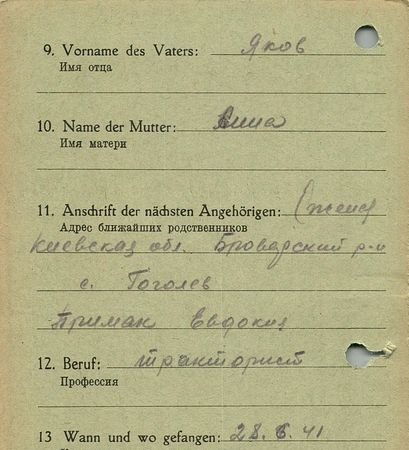 9. Vorname des Vaters: Яков
Имя отца
10. Name der Mutter: Анна
Имя матери
11. Anschrift der nächsten Angehörigen: (жена)
Адрес ближайших родственников
Киевская обл. Броварский р-н
с. Гоголев
Примак Евдокия
12. Beruf: тракторист
Профессия
13 Wann und wo gefangen: 28. 6. 41